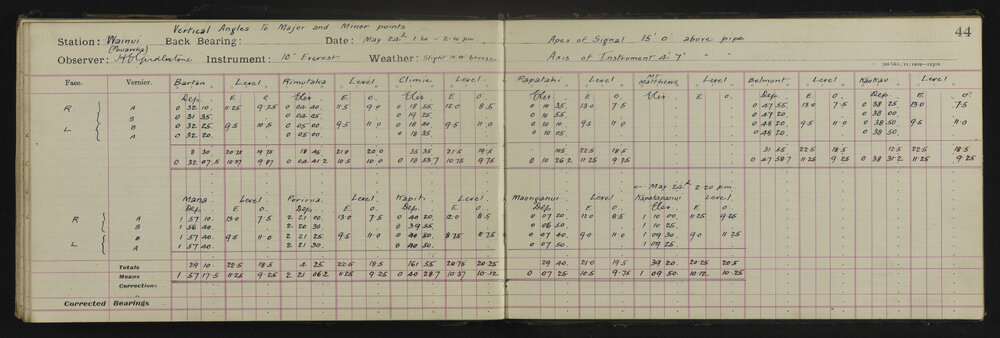 Vertical Angles To Major and Minor points
44
Station: Wainui Back Bearing: Date: May 24th 1.20 - 2.10 pm Apex of Signal 15' 0" above pipe
Observer: Instrument: 10" Everest Weather: Slight N.W. breeze Axis of Instrument 4' 7" " "
Face. Vernier. Bartan Level Rimutaka Level Climie Level Papatahi Level Mt. Matthews Level Belmont Level Kaukau Level
Dep. E O. Elev. E O. Elev. E O. Elev. E O. Elev. E O. Dep. E O. Dep. E O.
R A 0 32 10 11.25 9.25 0 04 40 11.5 9.0 0 18 55 12.0 8.5 0 10 35 13.0 7.5 0 47 55 13.0 7.5 0 38 25 13.0 7.5
B 0 31 35 0 04 05 0 19 25 0 10 55 0 47 20 0 38 00
L B 0 32 25 9.5 10.5 0 05 00 9.5 11.0 0 18 40 9.5 11.0 0 10 10 9.5 11.0 0 48 20 9.5 11.0 0 38 50 9.5 11.0
A 0 32 20 0 05 00 0 18 35 0 10 05 0 48 20 0 38 50
8 30 20.75 19.75 18 45 21.0 20.0 35 35 21.5 19.5 105 22.5 18.5 31 55 22.5 18.5 125 22.5 18.5
0 32 07.5 10.37 9.87 0 04 41.2 10.5 10.0 0 18 53.7 10.75 9.75 0 10 26.2 11.25 9.25 0 47 58.7 11.25 9.25 0 38 31.2 11.25 9.25
← May 24th 2.20 pm
Mana Level Porirua Level Kapiti Level Maunganui Level Kapakapanui Level
Dep. E O. Dep. E O. Dep. E O. Dep. E O. Elev. E O.
R A 1 57 10 13.0 7.5 2 21 00 13.0 7.5 0 40 20 12.0 8.5 0 07 20 12.0 8.5 1 10 00 11.25 9.25
B 1 56 40 2 20 30 0 39 55 0 06 50 1 10 25
L B 1 57 40 9.5 11.0 2 21 25 9.5 11.0 0 40 50 8.75 11.75 0 07 40 9.0 11.0 1 09 30 9.0 11.25
A 1 57 40 2 21 30 0 40 50 0 07 50 1 09 25
Totals 29 10 22.5 18.5 4 25 22.5 18.5 161 55 20.75 20.25 29 40 21.0 19.5 39 20 20.25 20.5
Means 1 57 17.5 11.25 9.25 2 21 06.2 11.25 9.25 0 40 28.7 10.37 10.12 0 07 25 10.5 9.75 1 09 50 10.12 10.25
Corrections
Corrected Bearings